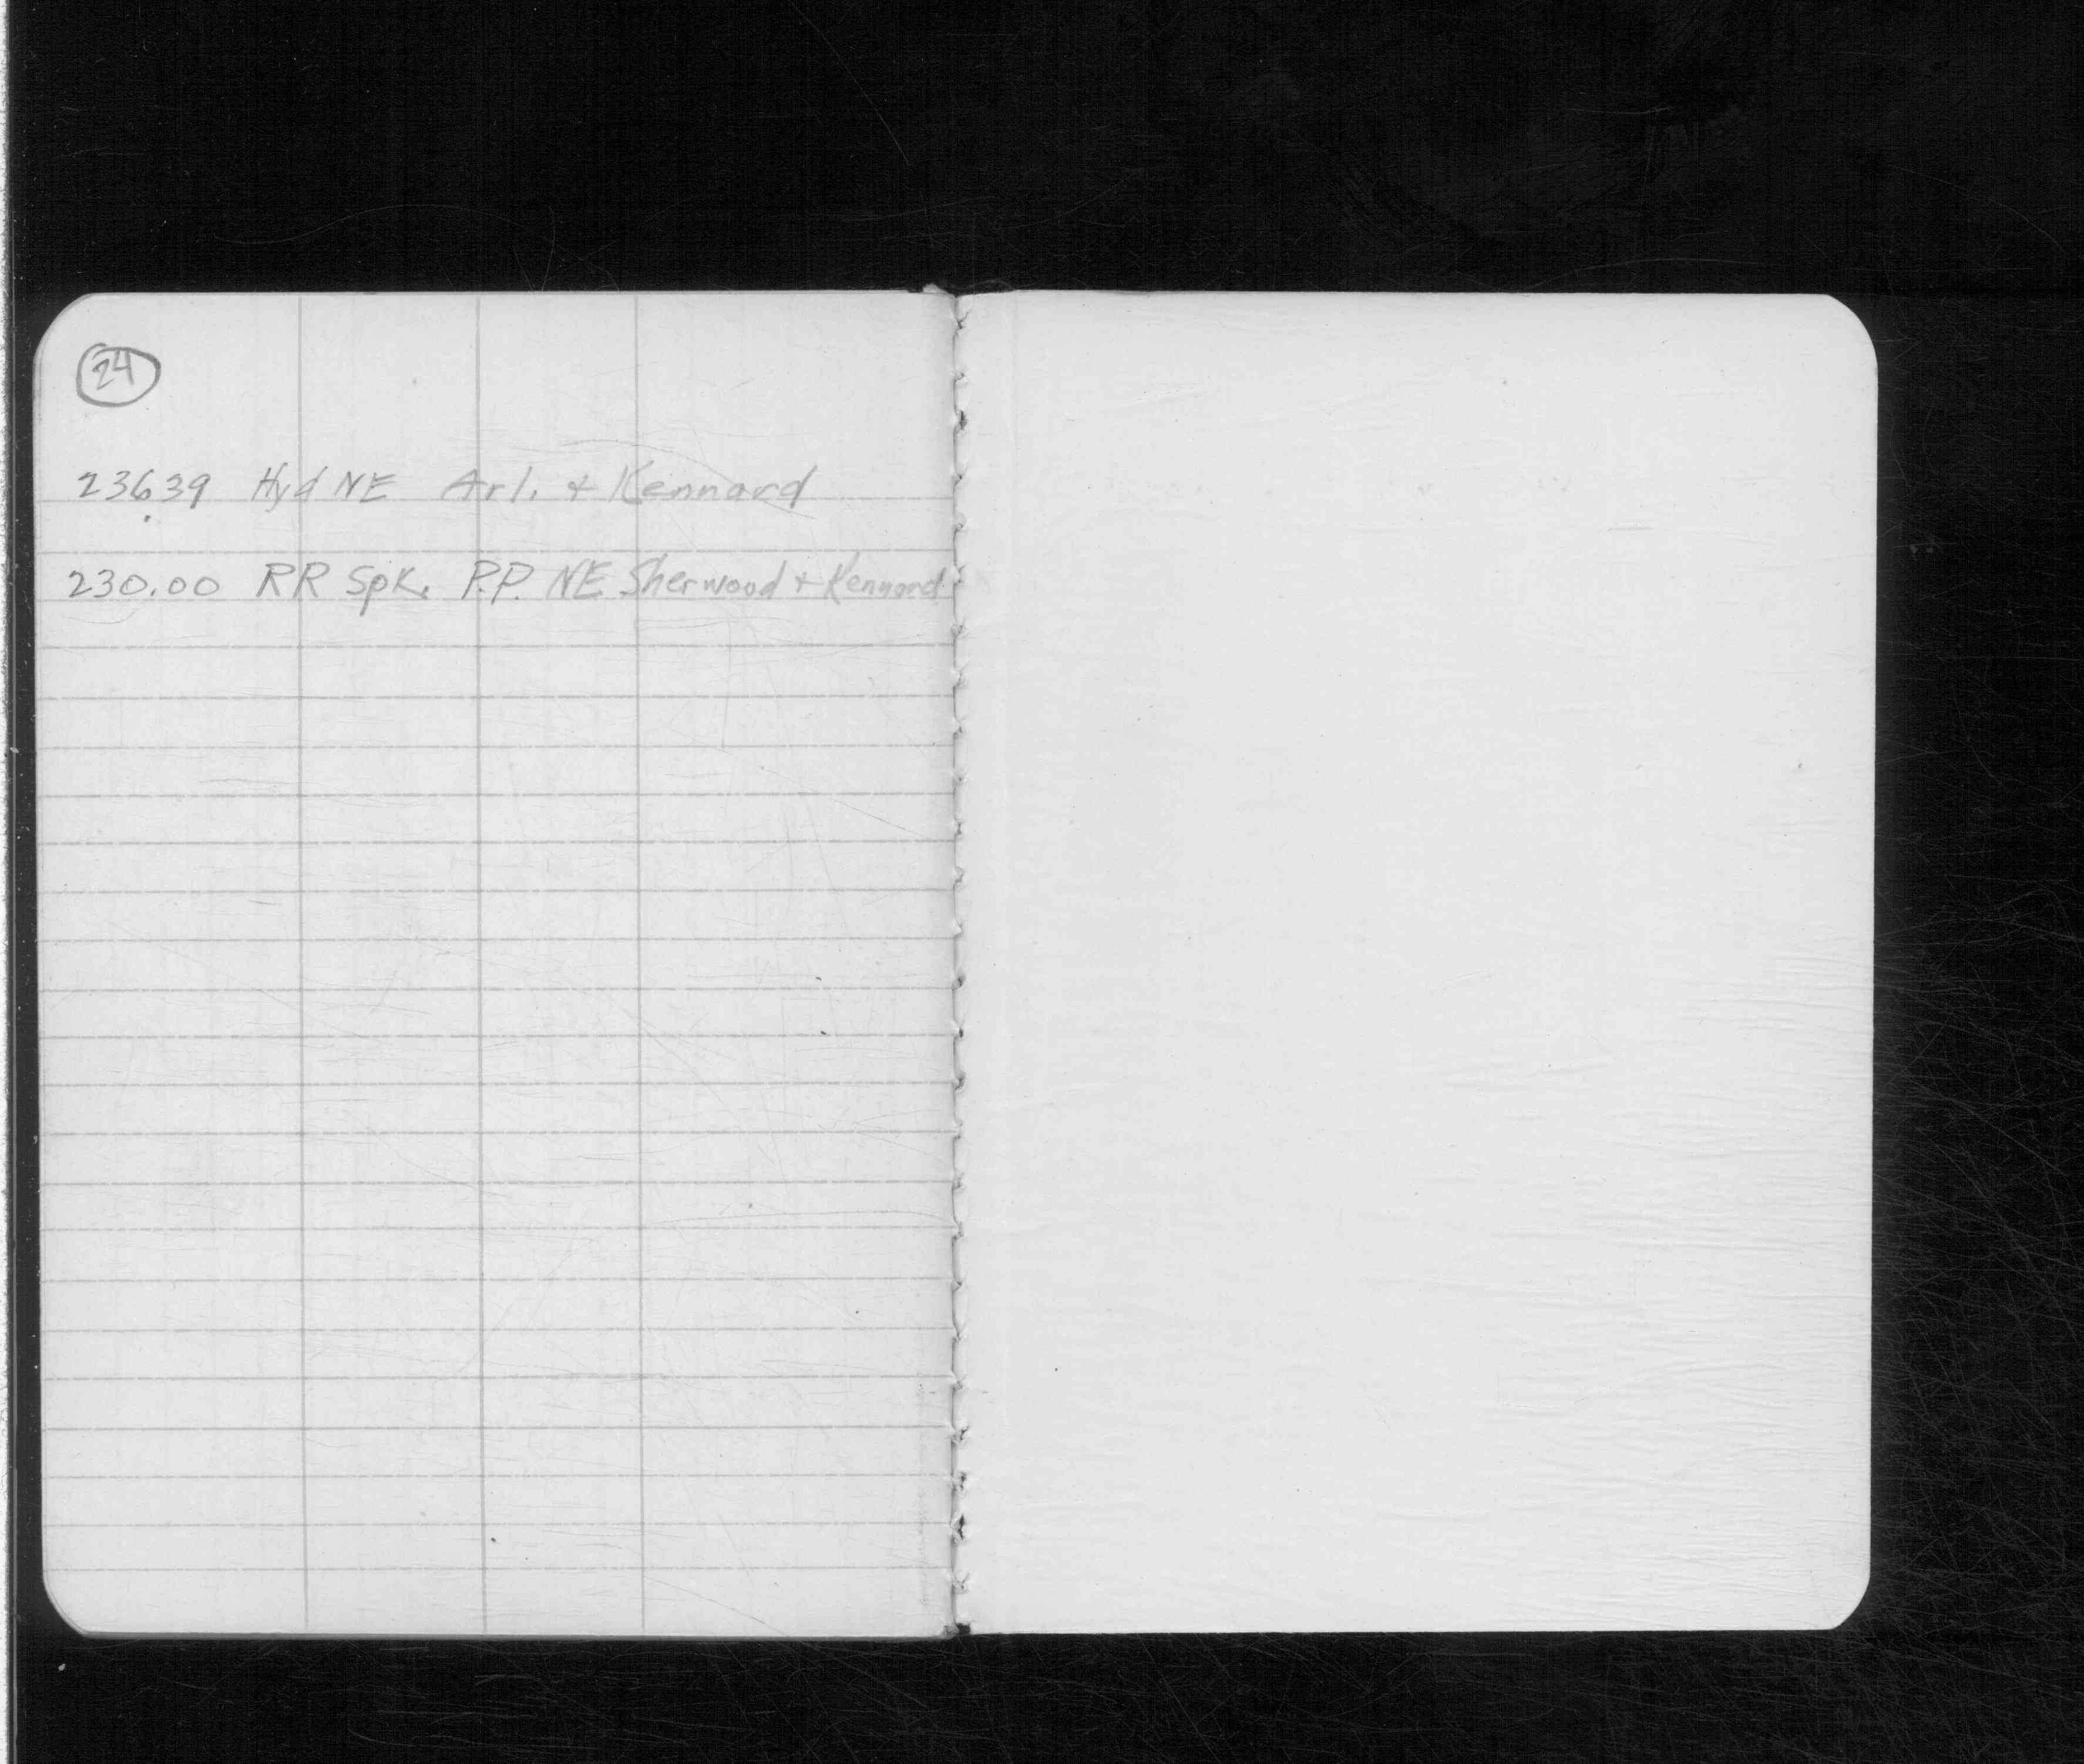 24
236.39 Hyd NE Arl. + Kennard
230.00 RR Spk. P.P. NE Sherwood + Kennard